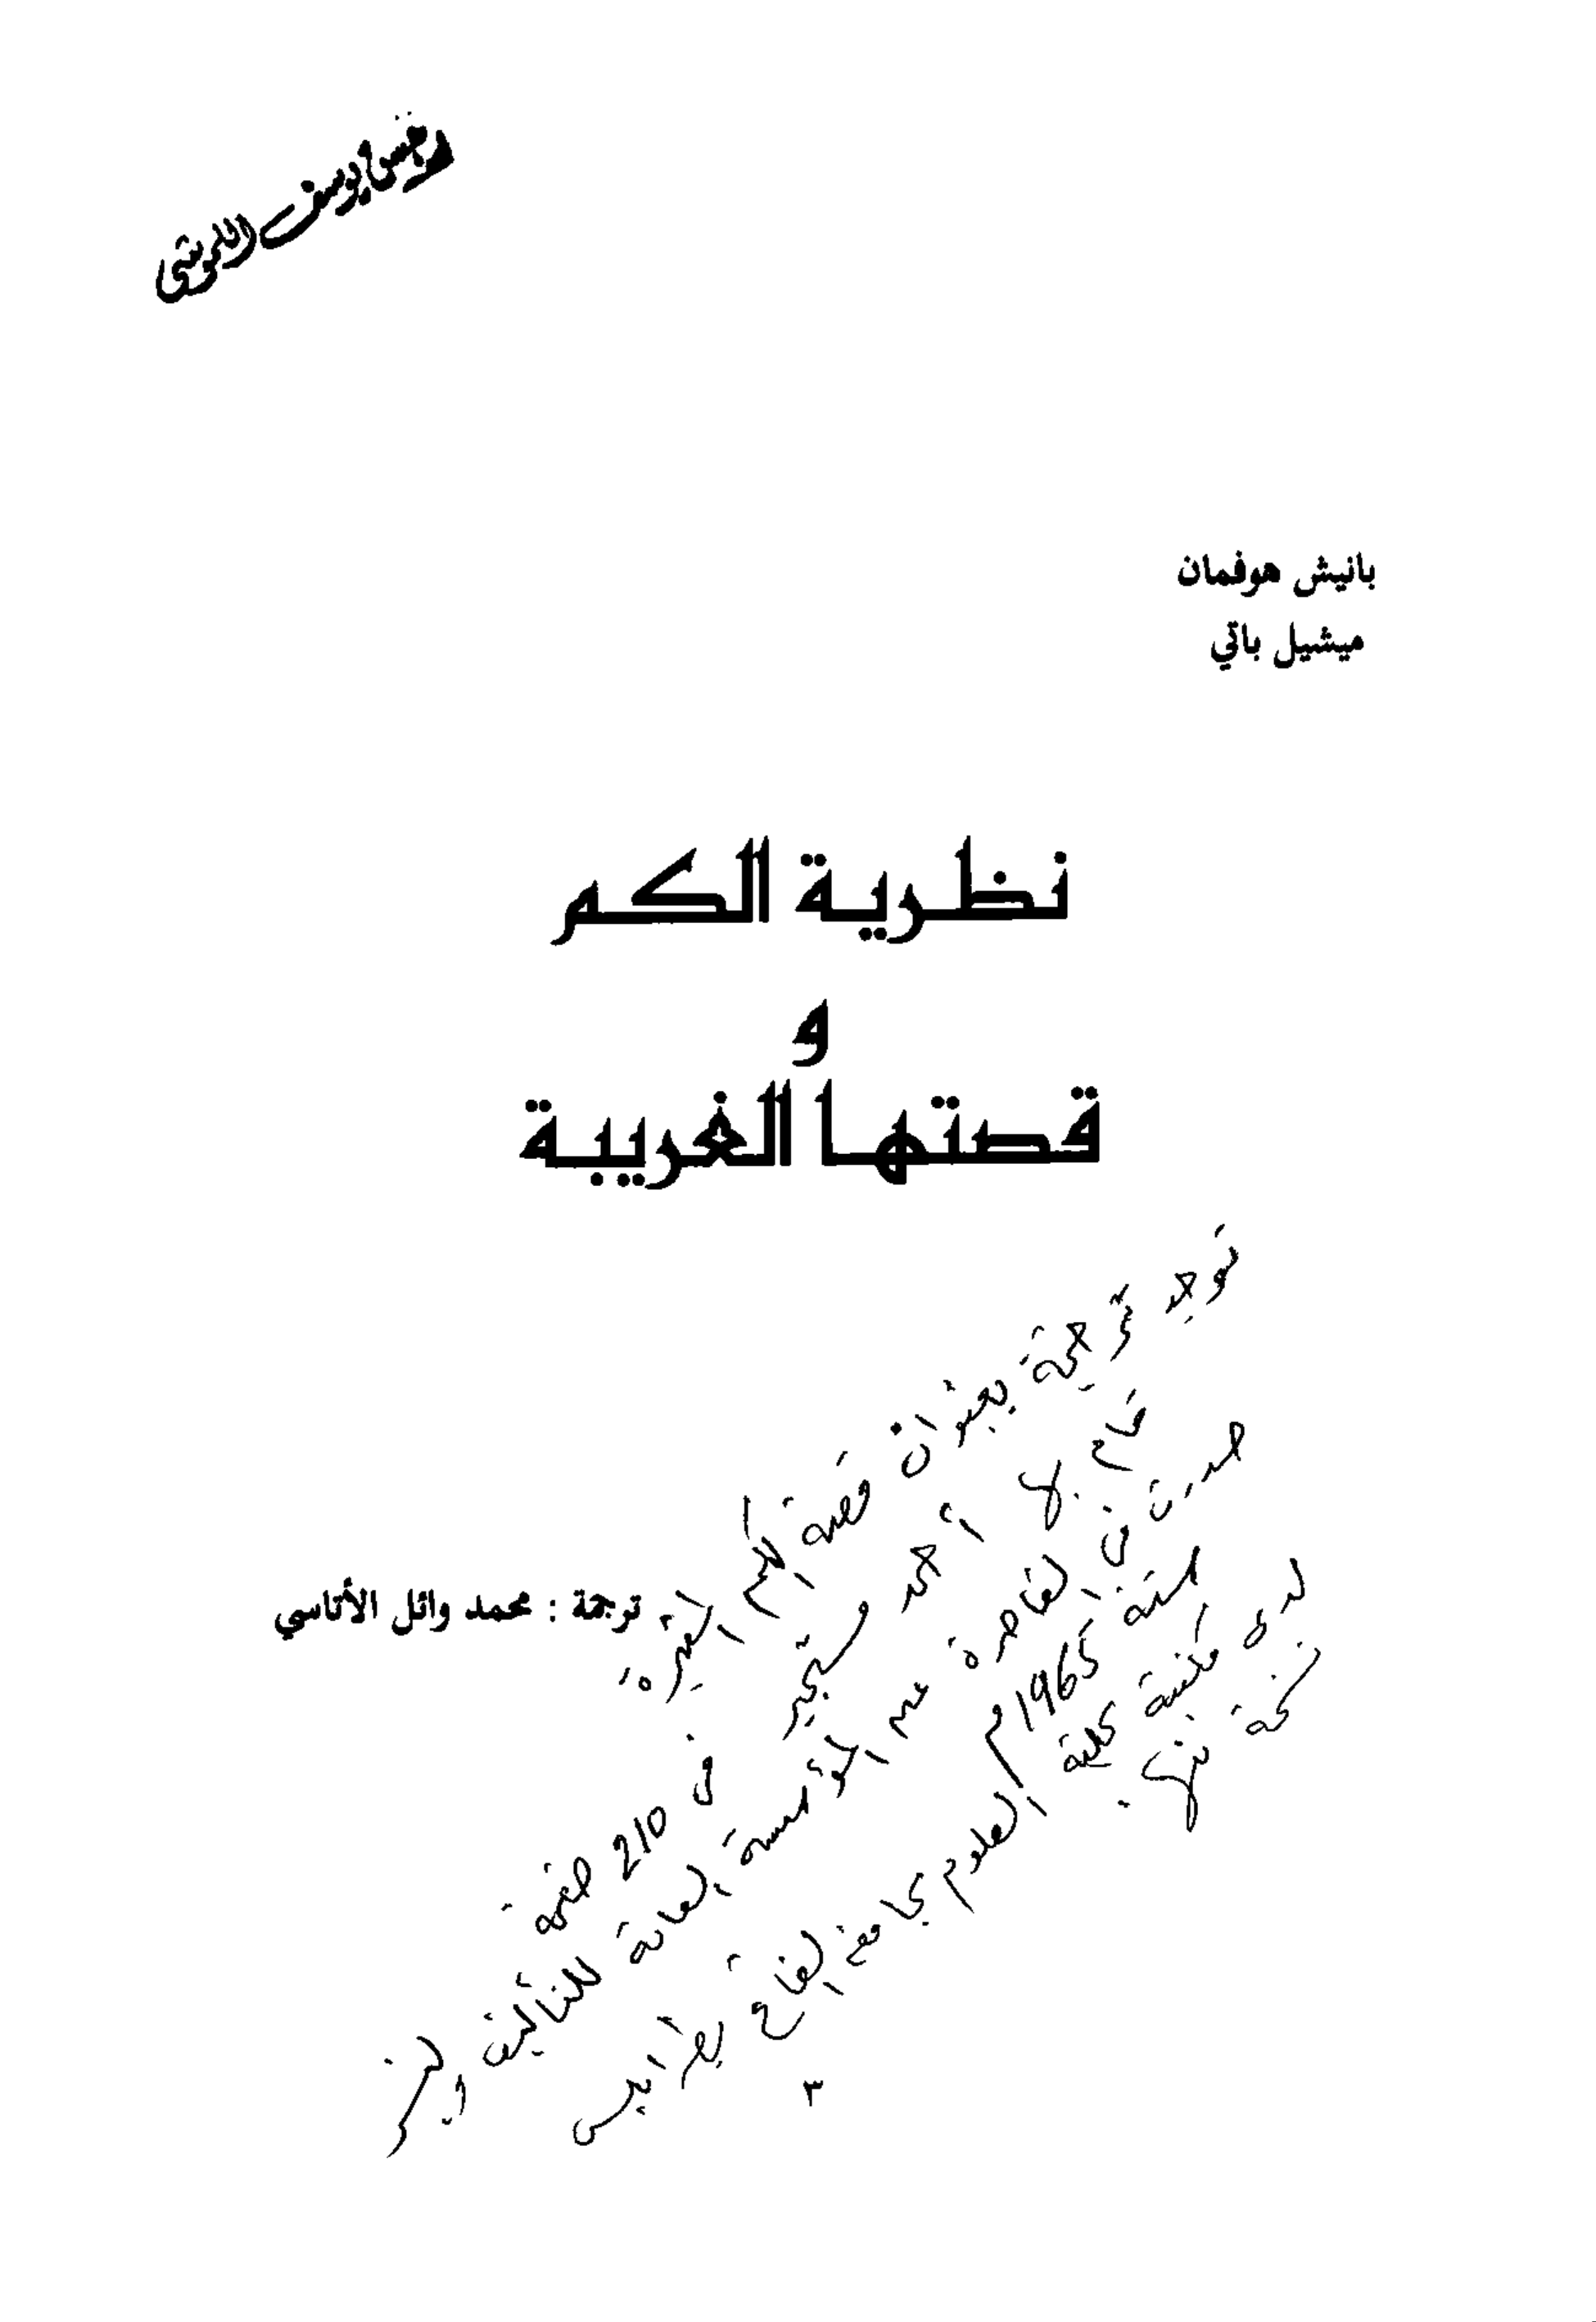 يوسف
بانيش هوفمان
ميشيل باتي
نظرية الكم
و
قصتها الغريبة
توجد ترجمة بعنوان قصة الكم المثيرة
قام بها أحمد مستجير في 210 صفحة
صدرت في القاهرة عن المؤسسة العامة للتأليف والنشر
لسنة 1965م
لدى مكتبة كلية العلوم بجامعة الفاتح بطرابلس
نسخة
ترجمة : محمد وائل الأتاسي
٣